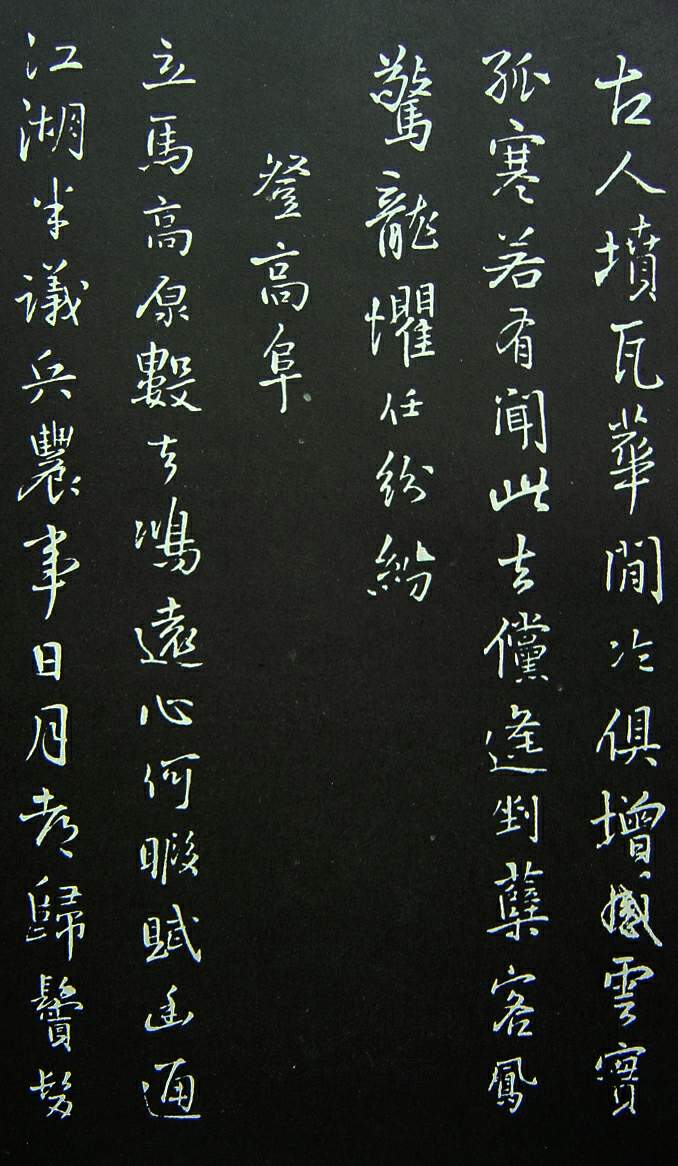 古人墳瓦葬閒冷俱增感雲寶
孤寒若有聞此去儻逢剉蘖客鳳
驚龍懼任紛紛
登高阜
立馬高原數去鴻遠心何暇賦幽通
江湖半議兵農事日月都歸鬢髮